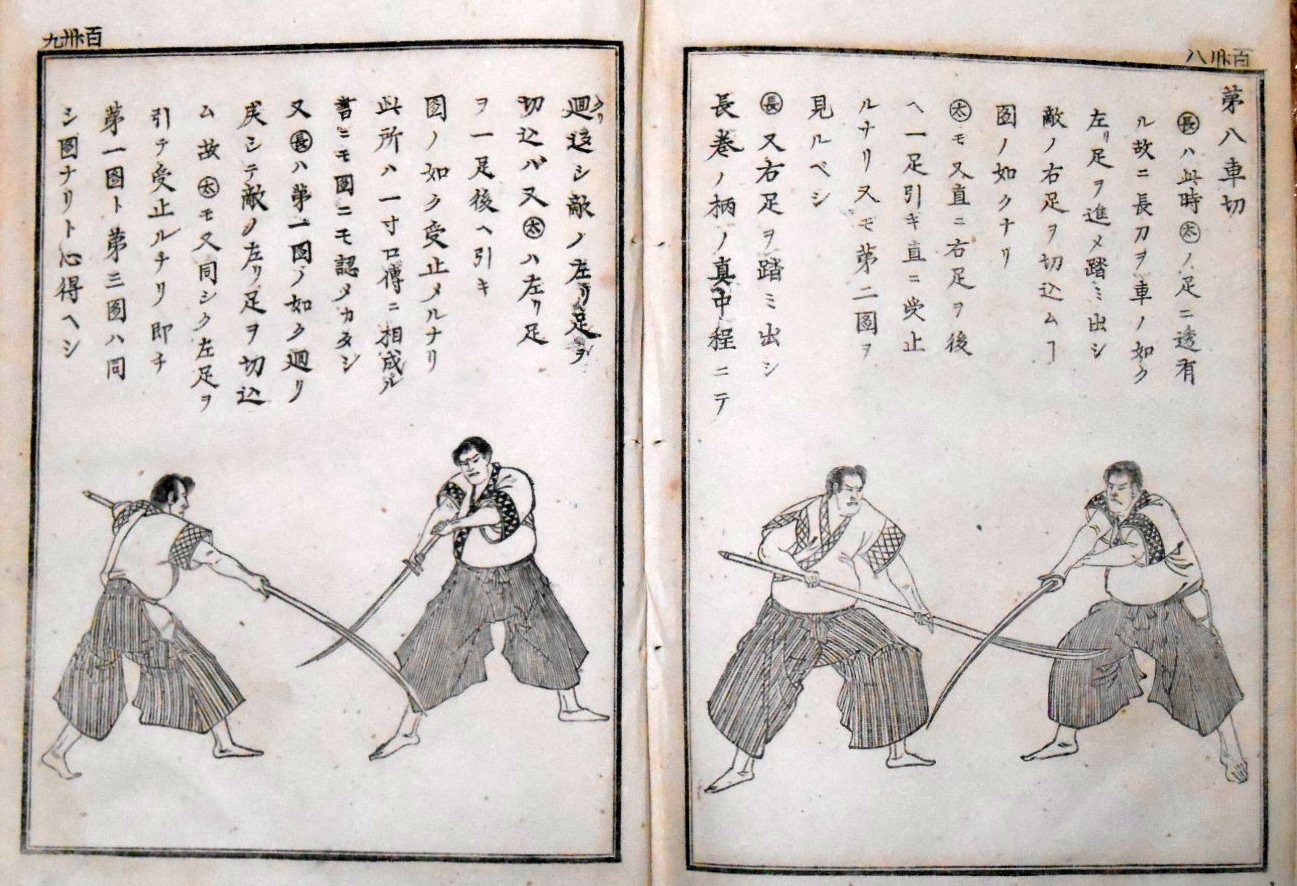 百卅八
第八車切
㊎長ハ此時太ノ足ニ透有
ル故ニ長刀ヲ車ノ如ク
左リ足ヲ進メ踏ミ出シ
敵ノ右足ヲ切込ムヿ
図ノ如クナリ
太モ又直ニ右足ヲ後
ヘ一足引キ直ニ受止
ルナリ又モ第二図ヲ
見ルベシ
長又右足ヲ踏ミ出シ
長巻ノ柄ノ真中程ニテ
百卅九
廻返シ敵ノ左リ足ヲ
切込バ又太ハ左リ足
ヲ一足後ヘ引キ
図ノ如ク受止メルナリ
此所ハ一寸口傳ニ相成ル
書ニモ図ニモ認メカタシ
又長ハ第一図ノ如ク廻リ
戻シテ敵ノ左リ足ヲ切込
ム故太モ又同シク左足ヲ
引テ受止ルナリ即チ
第一図ト第三図ハ同
シ図ナリト心得ヘシ